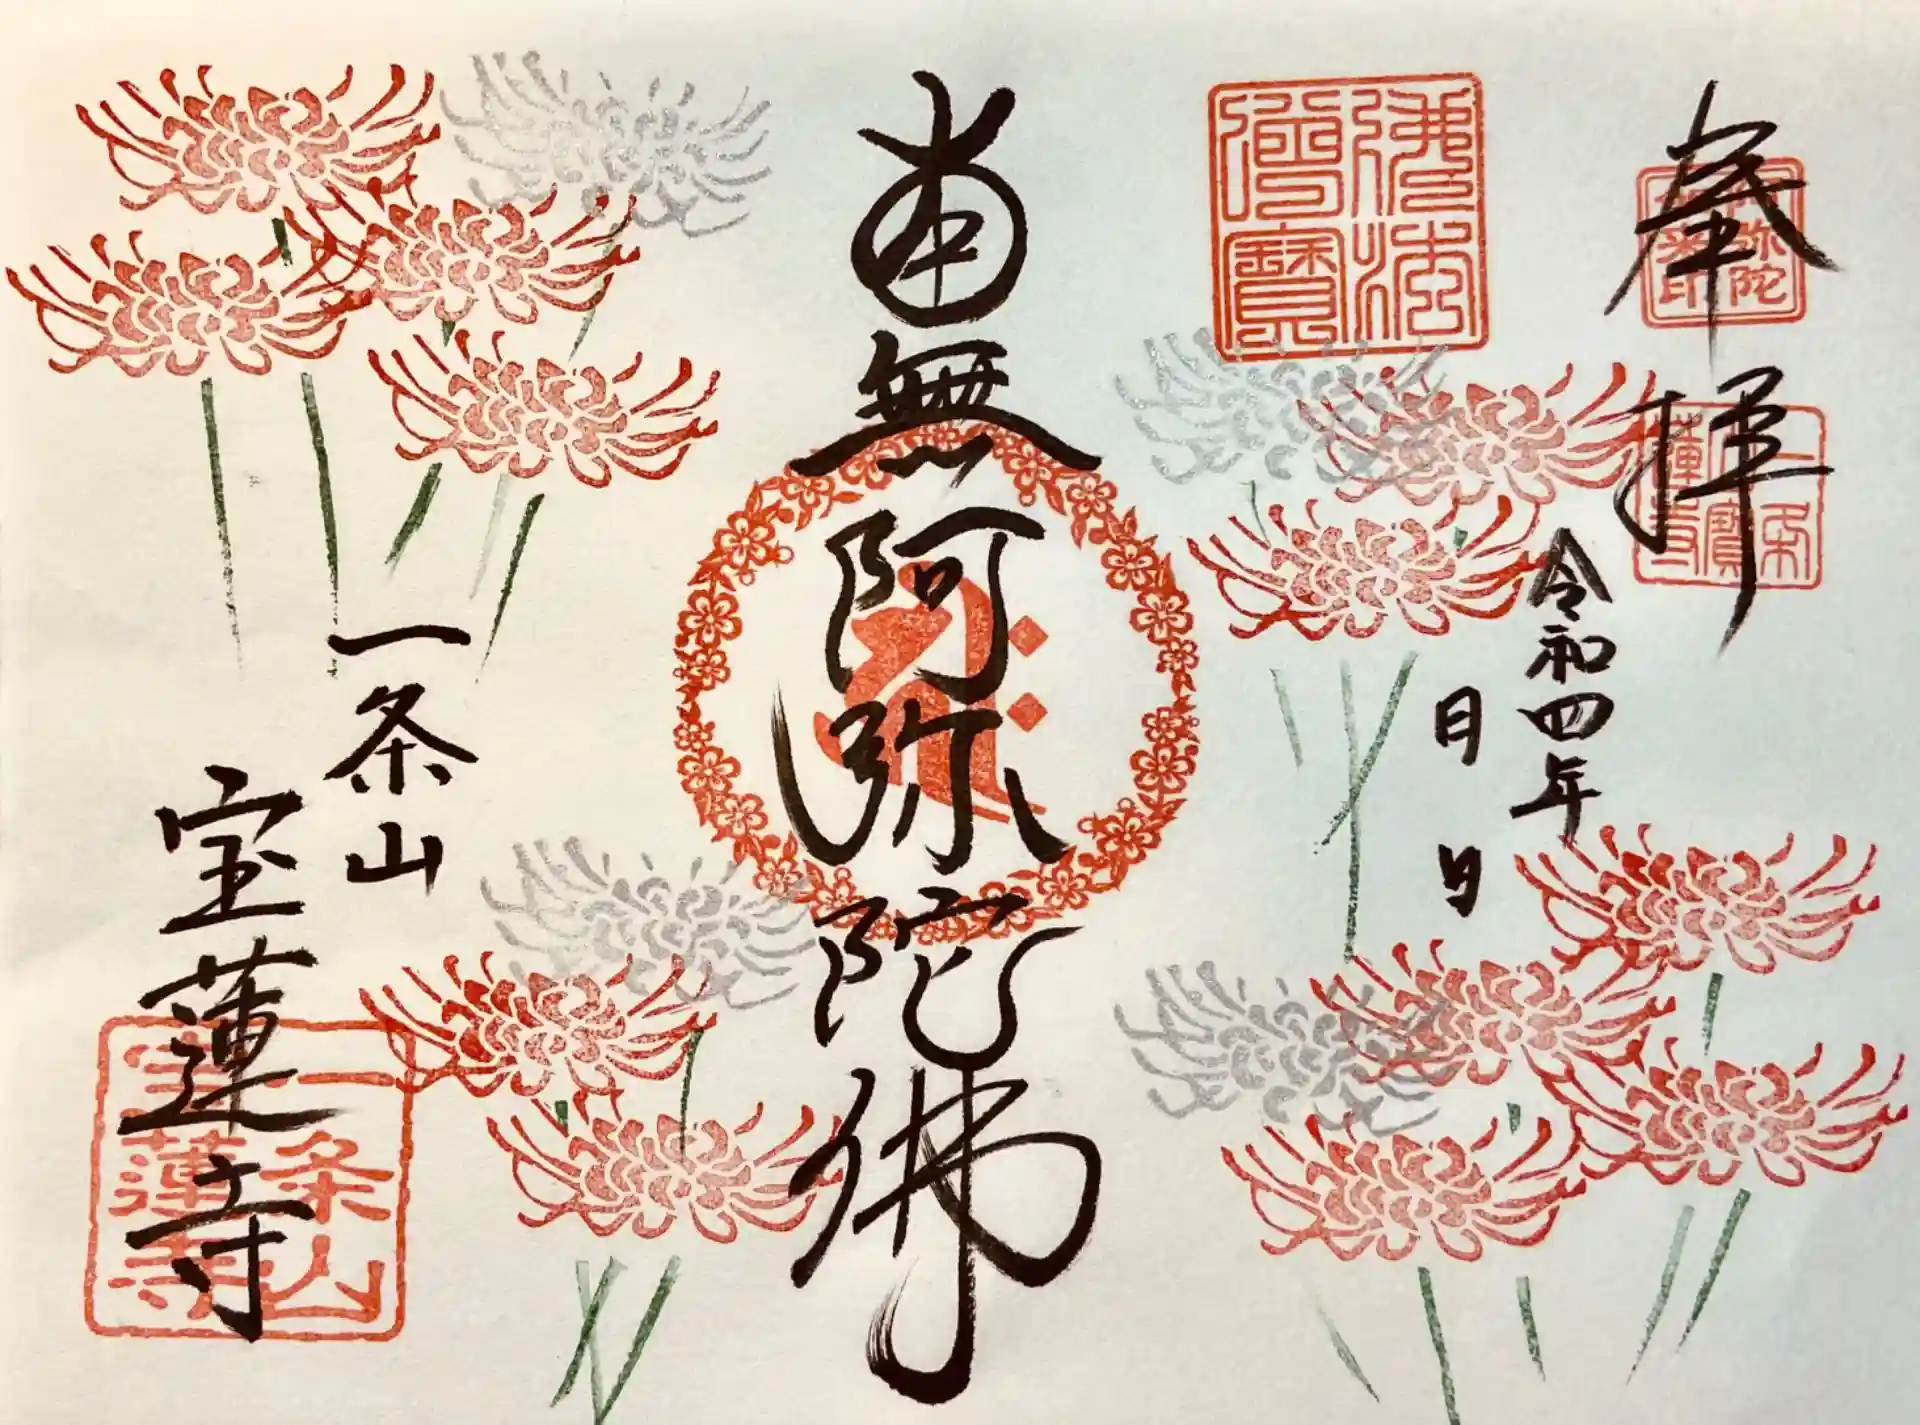 奉拝
令和四年
月 日
佛法僧寳
南無阿弥陀佛
一条山
宝蓮寺
一条山
宝蓮寺